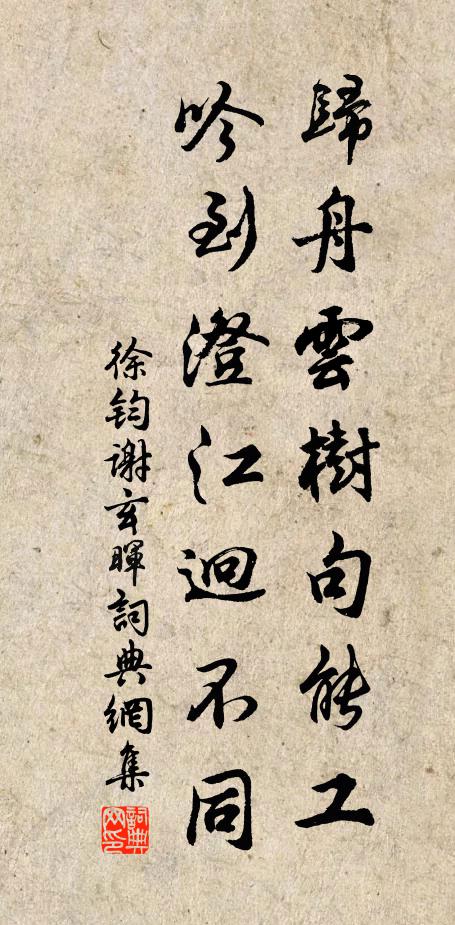 歸舟雲樹句能工
吟到澄江迥不同
徐鈞謝玄暉詞典網集
詞典網印